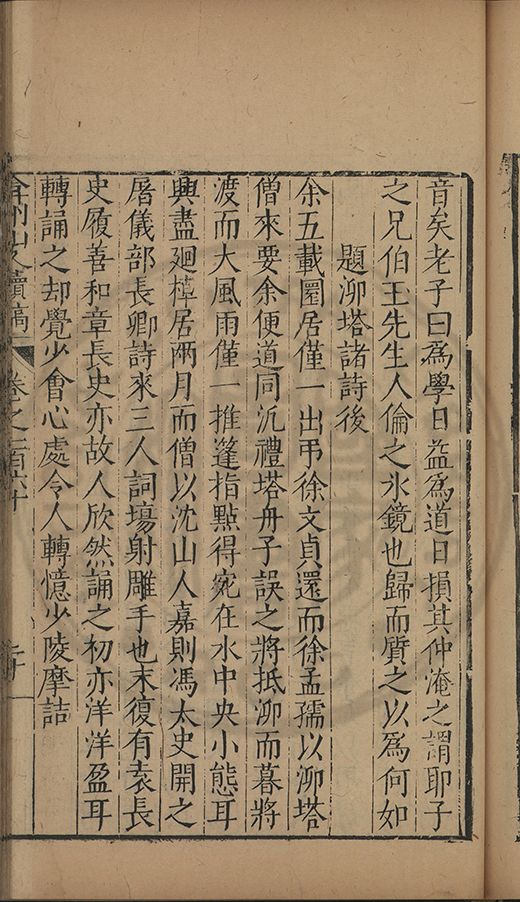 音矣老子曰爲學日益爲道日損其仲淹之謂耶子
之兄伯玉先生人倫之氷鏡也歸而質之以爲何如
題泖塔諸詩後
余五載圍居僅一出弔徐文貞還而徐孟孺以泖塔
僧來要余便道同汎禮塔舟子誤之將抵泖而暮將
渡而大風雨僅一推篷指點得宛在水中央小態耳
興盡廻棹居兩月而僧以沈山人嘉則馮太史開之
屠儀部長卿詩來三人詞塲射雕手也末復有袁長
史履善和章長史亦故人欣然誦之初亦洋洋盈耳
轉誦之却覺少會心處令人轉憶少陵摩詰
弇州山人續稿 卷之一百六十 二十一